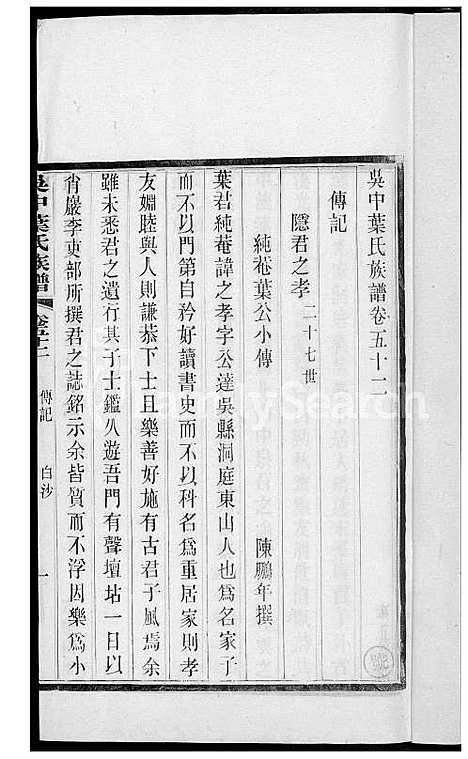 吳中葉氏族譜卷五十二
傳記
隱君之孝 二十七世
純菴葉公小傳 陳鵬年撰
葉君純菴諱之孝字公達吳縣洞庭東山人也為名家子
而不以門第自矜好讀書史而不以科名為重居家則孝
友婣睦與人則謙恭下士且樂善好施有古君子風焉余
雖未悉君之遺行其子士鑑久遊吾門有聲壇坫一日以
肖巖李吏部所撰君之誌銘示余皆質而不浮因樂為小
吳中葉氏族譜 卷五十二 傳記 白沙 一